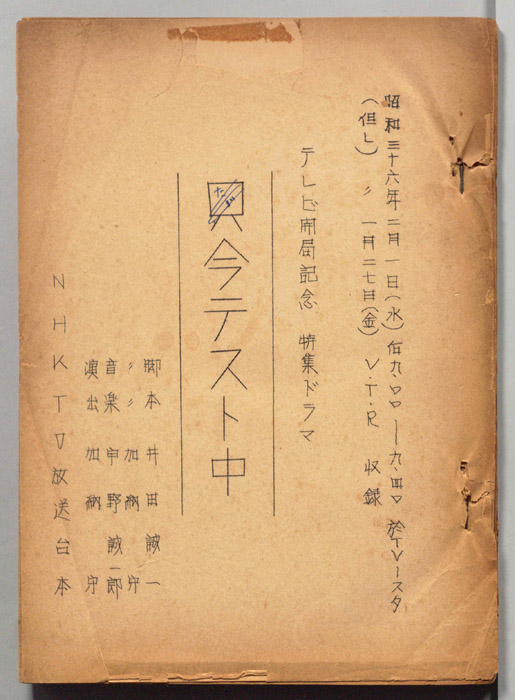 昭和三十六年二月一日(水)后九、〇〇―九、四〇 於TV一スタ
(但し) 〃 一月二七日(金) V・T・R 収録
テレビ開局記念 特集ドラマ
只今テスト中
脚本 井田誠一
〃〃 加納守
音楽 甲野誠一郎
演出 加納守
NHKTV放送台本